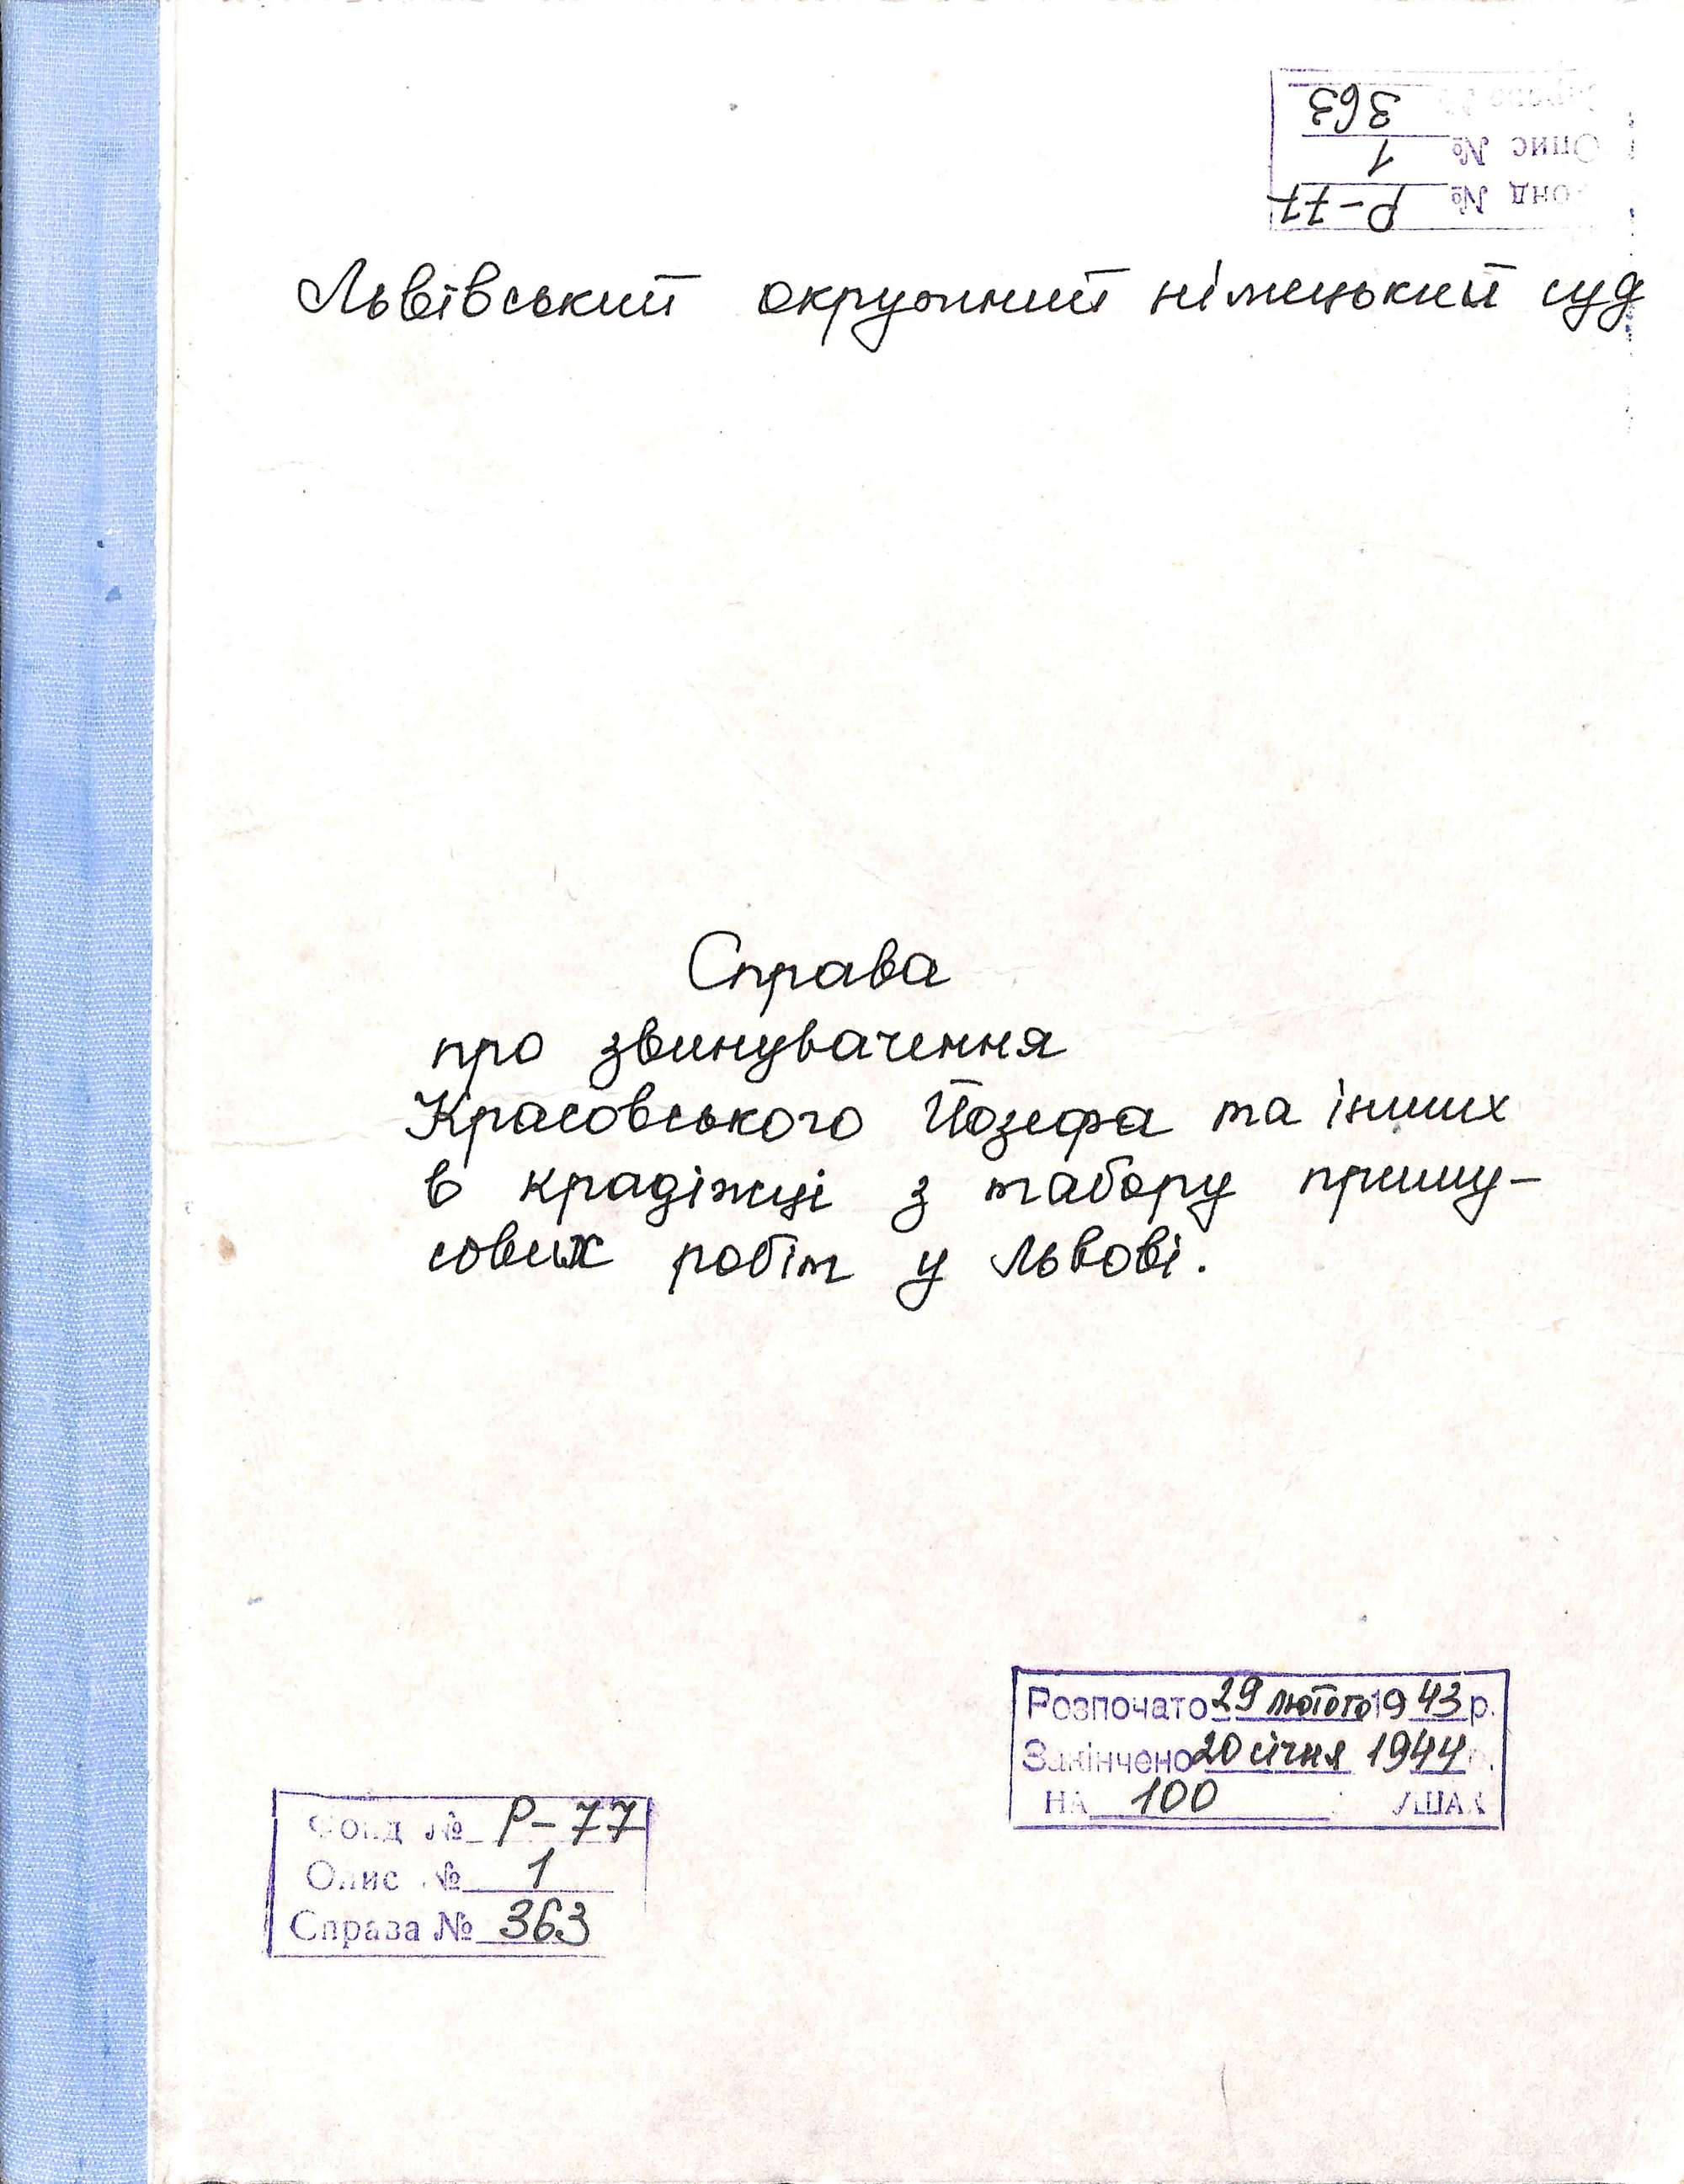 Фонд № Р-77
Опис № 1
Справа № 363
Львівський окружний німецький суд
Справа
про звинувачення
Красовського Йозефа та інших
в крадіжці з табору приму-
сових робіт у Львові.
Розпочато 29 лютого 1943 р.
Закінчено 20 січня 1944 р.
НА 100 АРКУШАХ
Фонд № Р-77
Опис № 1
Справа № 363